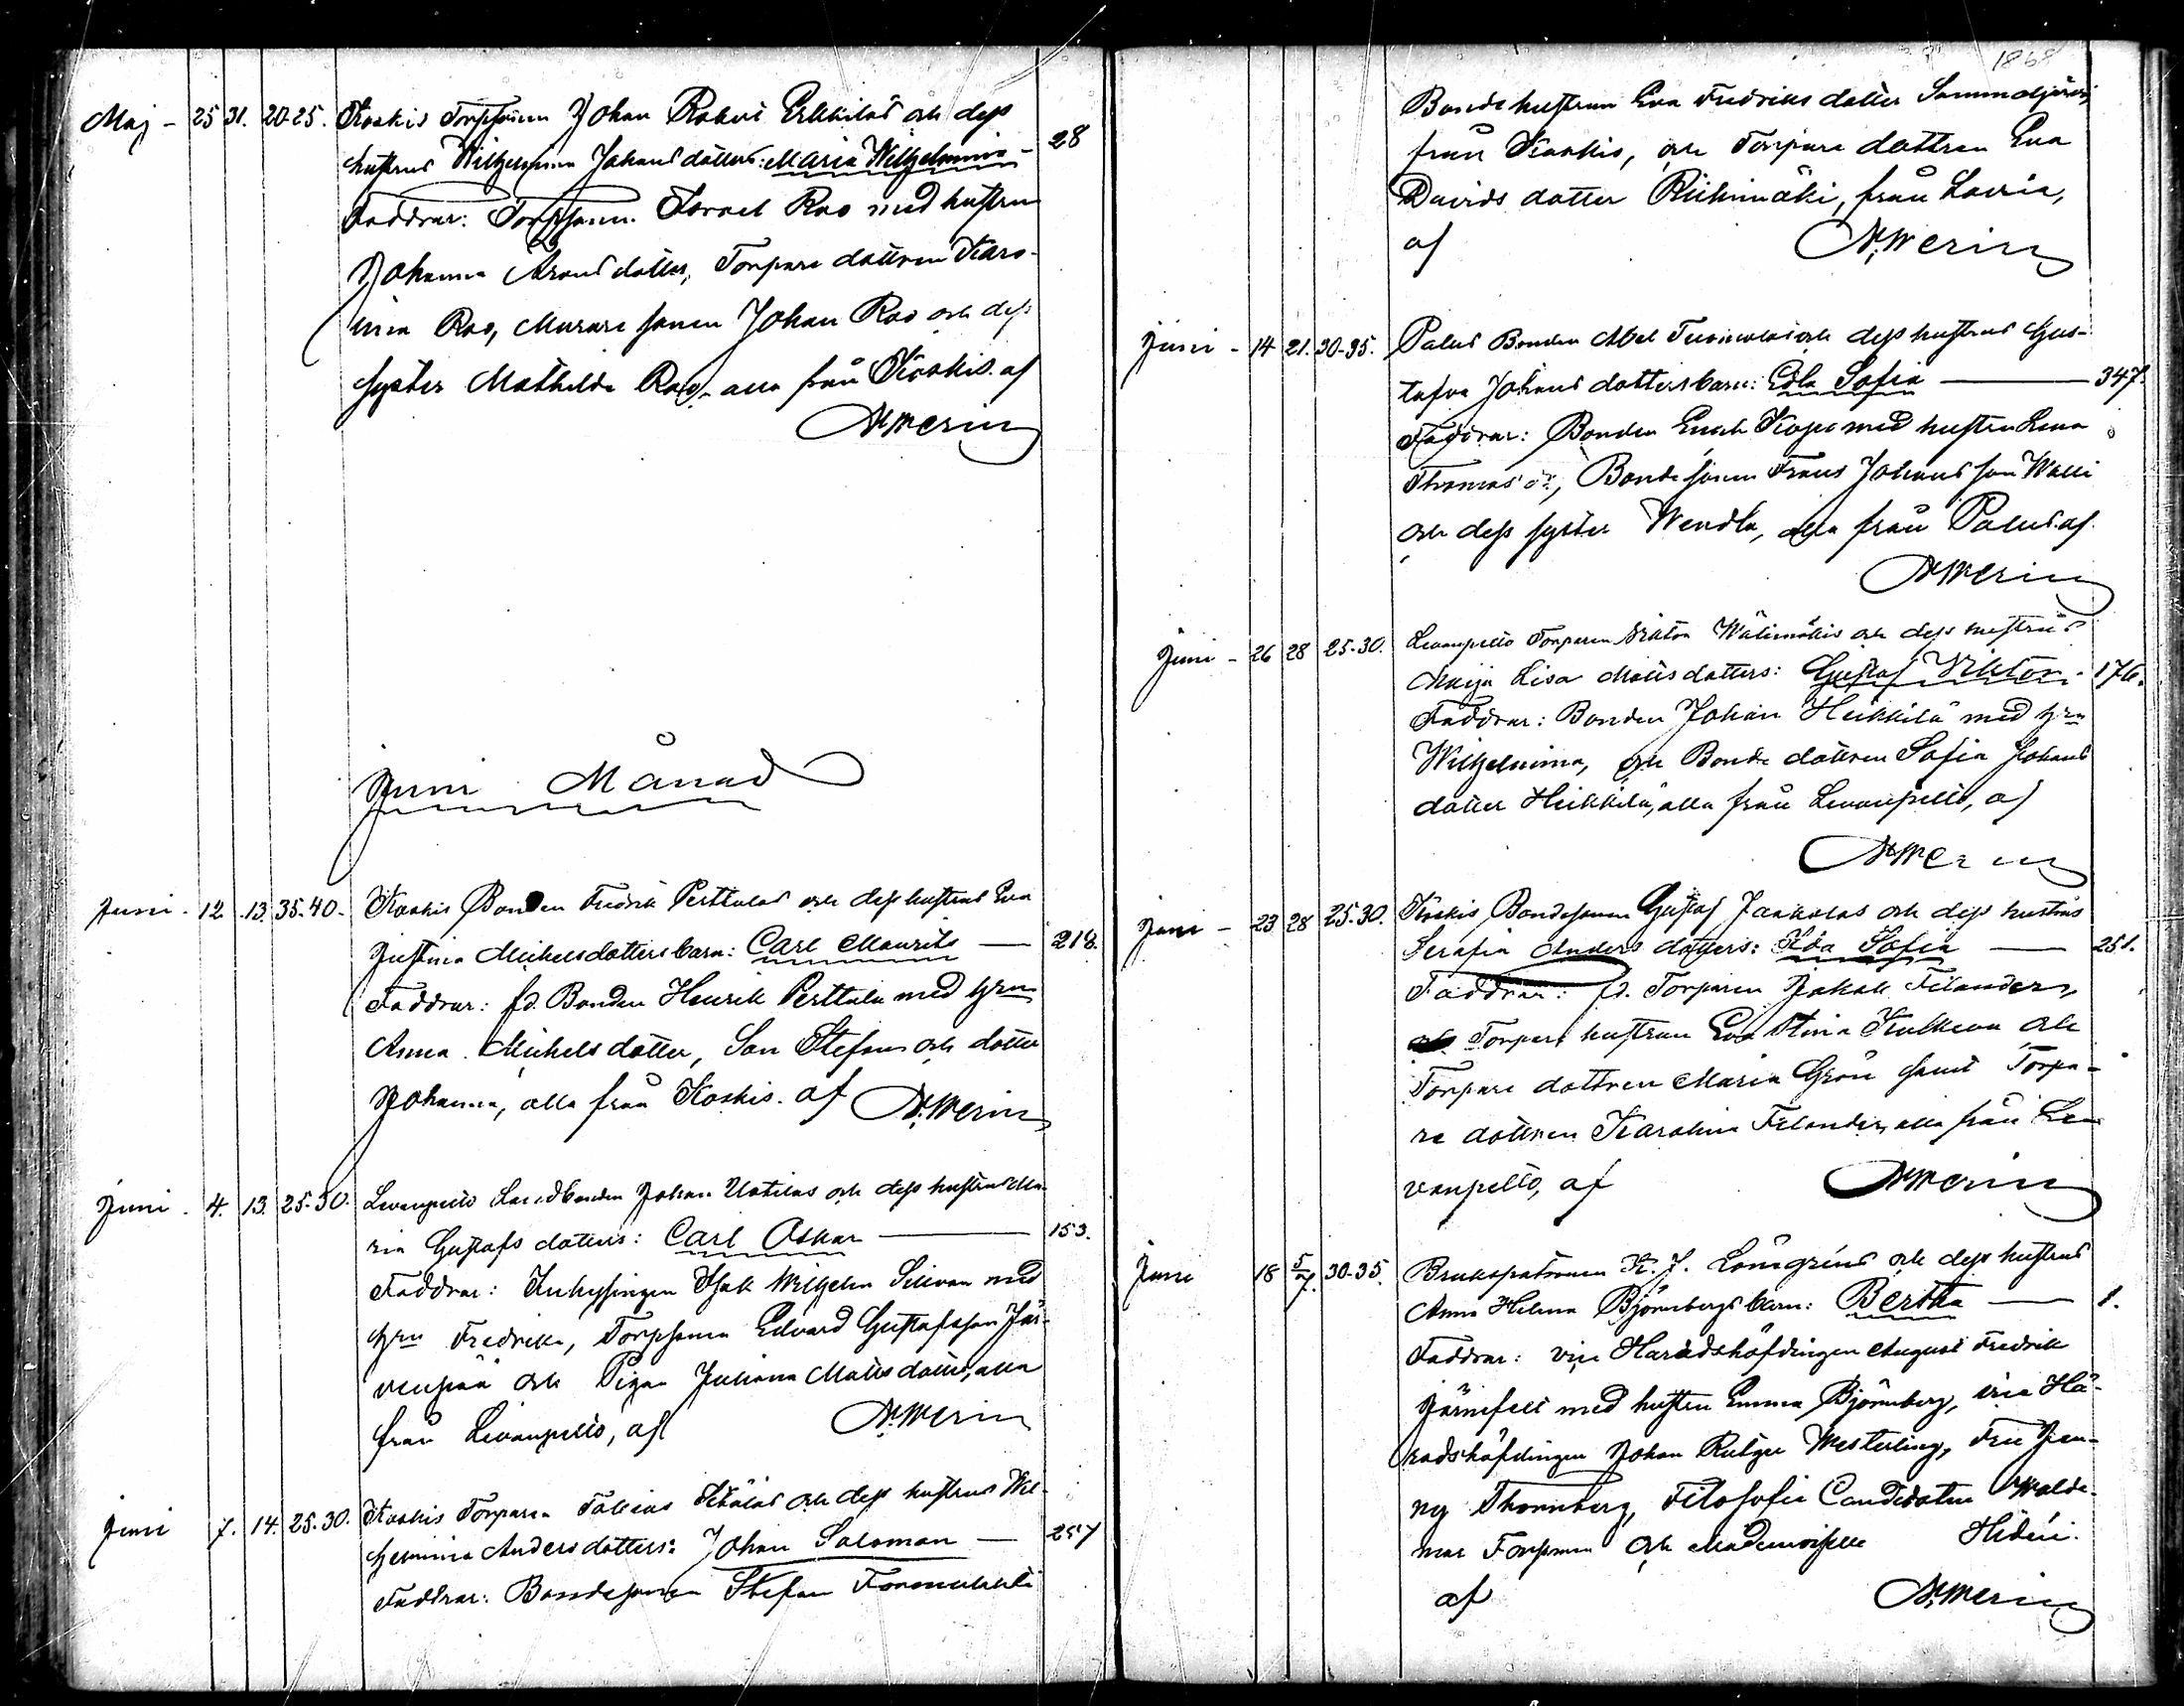 Maj - 25 31. 20-25. Koskis Torpson Johan Robert Erkkilas och dess
hustrus Wilhelmina Johansdotters: Maria Wilhelmina - 28
Faddrar: Torpson. Israel Roo med hustru
Johanna Aronsdotter, Torpare dottren Karo-
lina Roo, Murare sonen Johan Roo och dess
syster Mathilda Roo, alla från Koskis. af
N. Merin
Juni Månad
Juni - 12 13. 35-40. Koskis Bonden Fredrik Perttulas och dess hustrus Eva
Justina Michelsdotters barn: Carl Maurits — 218.
Faddrar: fd. Bonden Henrik Perttula med hrun
Anna Michelsdotter, Son Stefan och dotter
Johanna, alla från Koskis. af N. Merin
Juni. 4. 13. 25-30. Levanpelto Landbonden Johan Uotilas och dess hustrus Ma-
ria Gustafs dotters: Carl Oskar — 153.
Faddrar: Inhysingen Isak Wilhelm Silvan med
hrun Fredrika, Torpsonen Edvard Gustafsson Jär-
venpää och Pigan Juliana Mattsdotter, alla
från Levanpelto, af N. Merin
Juni 7. 14. 25-30. Koskis Torparen Tobias och dess hustrus Wil-
helmina Andersdotters: Johan Salomon — 257
Faddrar: Bondesonen Stefan
1868
Bondehustrun Eva Fredriksdotter
från Koskis, och Torpare dottren Eva
Davids dotter Riihimäki, från Lauria,
af N. Merin
Juni - 14 21. 30-35. Palus Bonden Abel och dess hustrus Gus-
tafva Johans dotters barn: Edla Sofia — 347.
Faddrar: Bonden Enok med hustru Lena
Thomas dr., Bondesonen Frans Johansson Walli
och dess syster Wendla, alla från Palus. af
N. Merin
Juni - 26 28 25-30. Levanpelto Torparen Viktor Wälimäkis och dess hustrus
Maija Lisa Mattsdotters: Gustaf Viktor - 176.
Faddrar: Bonden Johan Heikkilä med hrun
Wilhelmina, och Bonde dottren Sofia Johans
dotter Heikkilä, alla från Levanpelto, af
N. Merin
Juni - 23 28 25-30. Koskis Bondesonen Gustaf Jaakolas och dess hustrus
Serafia Anders dotters: Ida Sofia — 251.
Faddrar: fd. Torparen Jakob Filander,
Torpare hustrun Eva Stina och
Torpare dottren Maria Grön samt Torpa-
re dottren Karolina Filander, alla från Le-
vanpelto, af N. Merin
Juni 18 5/7. 30-35. Brukspatronen K. J. Lönegréns och dess hustrus
Anna Helena Björnbergs barn: Bertha — 1.
Faddrar: vice Häradshöfdingen August Fredrik
Järnefelt med hustru Emma Björnberg, vice Hä-
radshöfdingen Johan Rutger Westerling, Fru Jen-
ny Thornberg, Filosofie Candidaten Walde-
mar Forsman och Mademoiselle Hidén.
af N. Merin